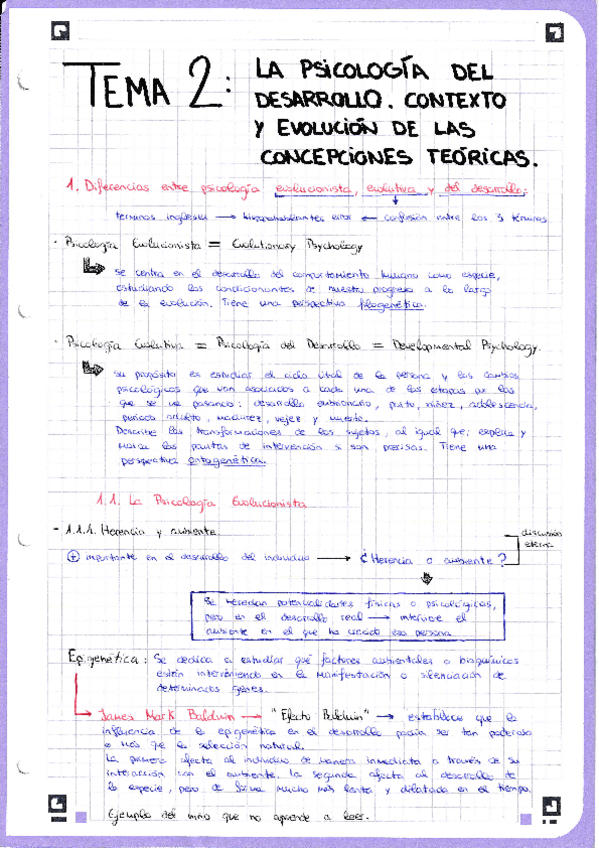 TEMA 2: LA PSICOLOGÍA DEL
DESARROLLO. CONTEXTO
Y EVOLUCIÓN DE LAS
CONCEPCIONES TEÓRICAS.
1. Diferencias entre psicología evolucionista, evolutiva y del desarrollo:
términos ingleses → hispanohablantes error ← confusión entre los 3 términos
· Psicología Evolucionista = Evolutionary Psychology
se centra en el desarrollo del comportamiento humano como especie,
estudiando los condicionantes de nuestro progreso a lo largo
de la evolución. Tiene una perspectiva filogenética.
· Psicología Evolutiva = Psicología del Desarrollo = Developmental Psychology.
su propósito es estudiar el ciclo vital de la persona y los cambios
psicológicos que van asociados a cada una de las etapas por las
que se va pasando: desarrollo embrionario, parto, niñez, adolescencia,
periodo adulto, madurez, vejez y muerte.
Describe las transformaciones de los sujetos, al igual que; explica y
las pautas de intervención si son precisas. Tiene una
perspectiva ontogenética.
1.1. La Psicología Evolucionista
- 1.1.1. Herencia y ambiente
+ importante en el desarrollo del individuo → ¿Herencia o ambiente?
discusión
eterna
Se heredan potencialidades físicas o psicológicas,
pero en el desarrollo real → interviene el
ambiente en el que ha crecido esa persona
Epigenética: Se dedica a estudiar qué factores ambientales o bioquímicos
están interviniendo en la manifestación o silenciación de
determinados genes.
James Mark Baldwin → "Efecto Baldwin" → establece que la
influencia de la epigenética en el desarrollo podía ser tan poderosa
o más que la selección natural.
La primera afecta al individuo de manera inmediata a través de su
interacción con el ambiente. La segunda afecta al desarrollo de
la especie, pero de forma mucho más lenta y dilatada en el tiempo.
Ejemplo del niño que no aprende a leer.